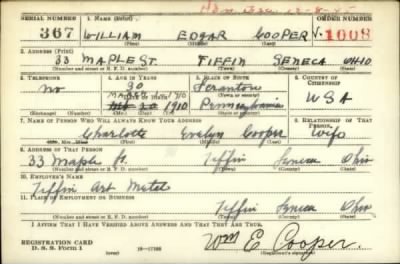 SERIAL NUMBER 1. NAME (Print) ORDER NUMBER
367 WILLIAM EDGAR COOPER V. 1008
2. ADDRESS (Print)
33 MAPLE ST. TIFFIN SENECA OHIO
(Number and street or R. F. D. number) (Town) (County) (State)
3. TELEPHONE 4. AGE IN YEARS 5. PLACE OF BIRTH 6. COUNTRY OF CITIZENSHIP
30 Scranton
DATE OF BIRTH (Town or county)
No 1910 Pennsylvania USA
7. NAME OF PERSON WHO WILL ALWAYS KNOW YOUR ADDRESS 8. RELATIONSHIP OF THAT PERSON
Charlotte Evelyn Cooper Wife
9. ADDRESS OF THAT PERSON
33 Maple St. Tiffin Seneca Ohio
(Number and street or R. F. D. number) (Town) (County) (State)
10. EMPLOYER'S NAME
Tiffin Art Metal
11. PLACE OF EMPLOYMENT OR BUSINESS
Tiffin Seneca Ohio
(Number and street or R. F. D. number) (Town) (County) (State)
I AFFIRM THAT I HAVE VERIFIED ABOVE ANSWERS AND THAT THEY ARE TRUE.
REGISTRATION CARD
D. S. S. Form 1 (over) Wm E. Cooper.
(Registrant's signature)